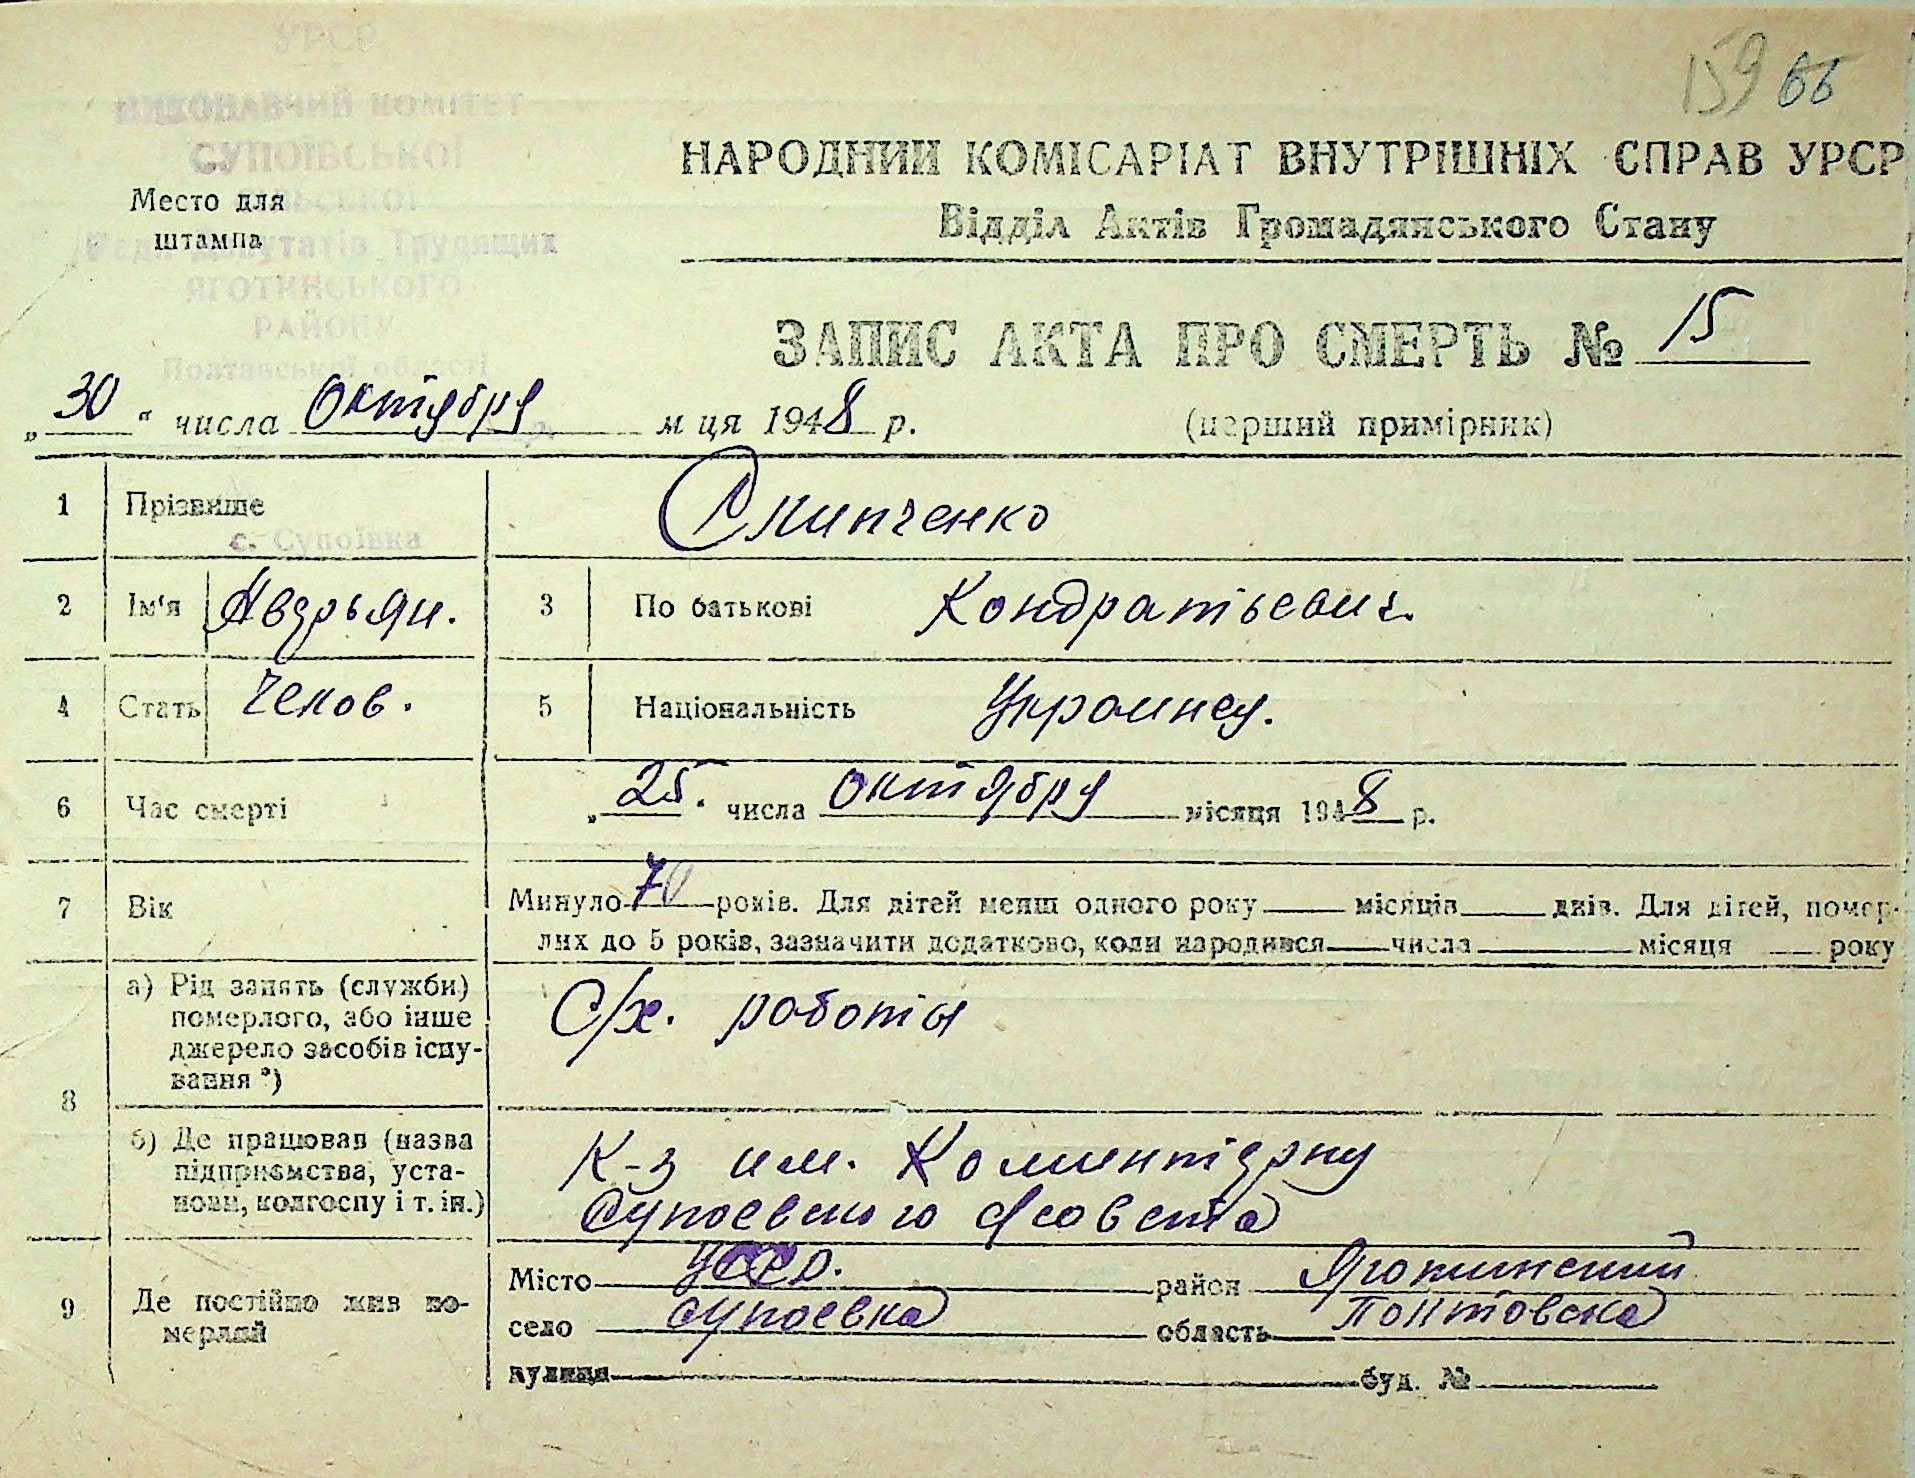 159 66
УРСР
ВИКОНАВЧИЙ КОМІТЕТ
СУПОЇВСЬКОЇ
СІЛЬСЬКОЇ
Ради Депутатів Трудящих
ЯГОТИНСЬКОГО
РАЙОНУ
Полтавської області
с. Супоївка
Место для
штампа
НАРОДНИЙ КОМІСАРІАТ ВНУТРІШНІХ СПРАВ УРСР
Відділ Актів Громадянського Стану
ЗАПИС АКТА ПРО СМЕРТЬ № 15
„30“ числа Октября м ця 1948 р. (перший примірник)
1 Прізвише
2 Ім'я Аверьян. 3 По батькові Кондратьевич.
4 Стать Челов. 5 Національність Украинец.
6 Час смерті „25. числа октября місяця 1948 р.
7 Вік Минуло 70 років. Для дітей менш одного року місяців днів. Для дітей, помер-
лих до 5 років, зазначити додатково, коли народився числа місяця року
8 а) Рід занять (служби) померлого, або інше джерело засобів існу- вання *) С/х. работы
б) Де працював (назва підприємства, уста- нови, колгоспу і т. ін.) К-з им. Коминтерну
Супоевского с/совета
9 Де постійно жив по- мерлий Місто УССР. район Яготинский
село Супоевка область Полтавска
вулиця буд. №